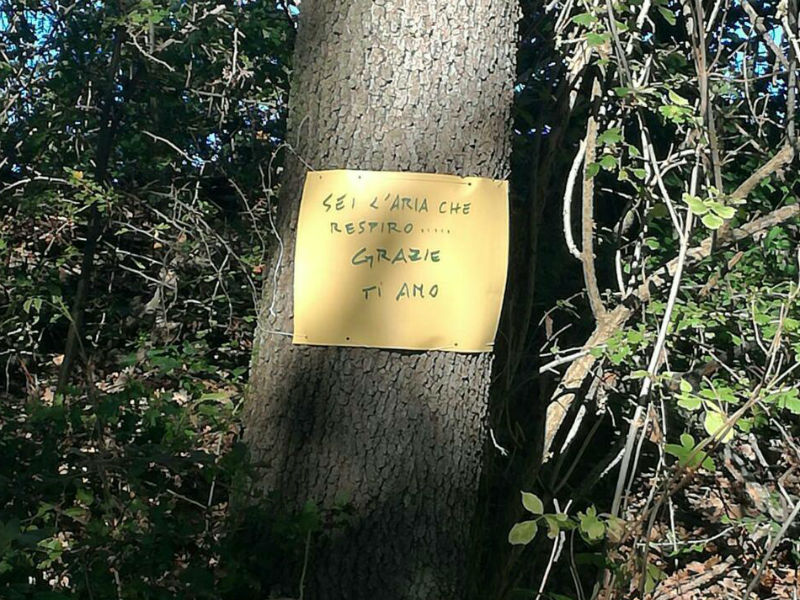 SEI L'ARIA CHE
RESPIRO.....
GRAZIE
TI AMO